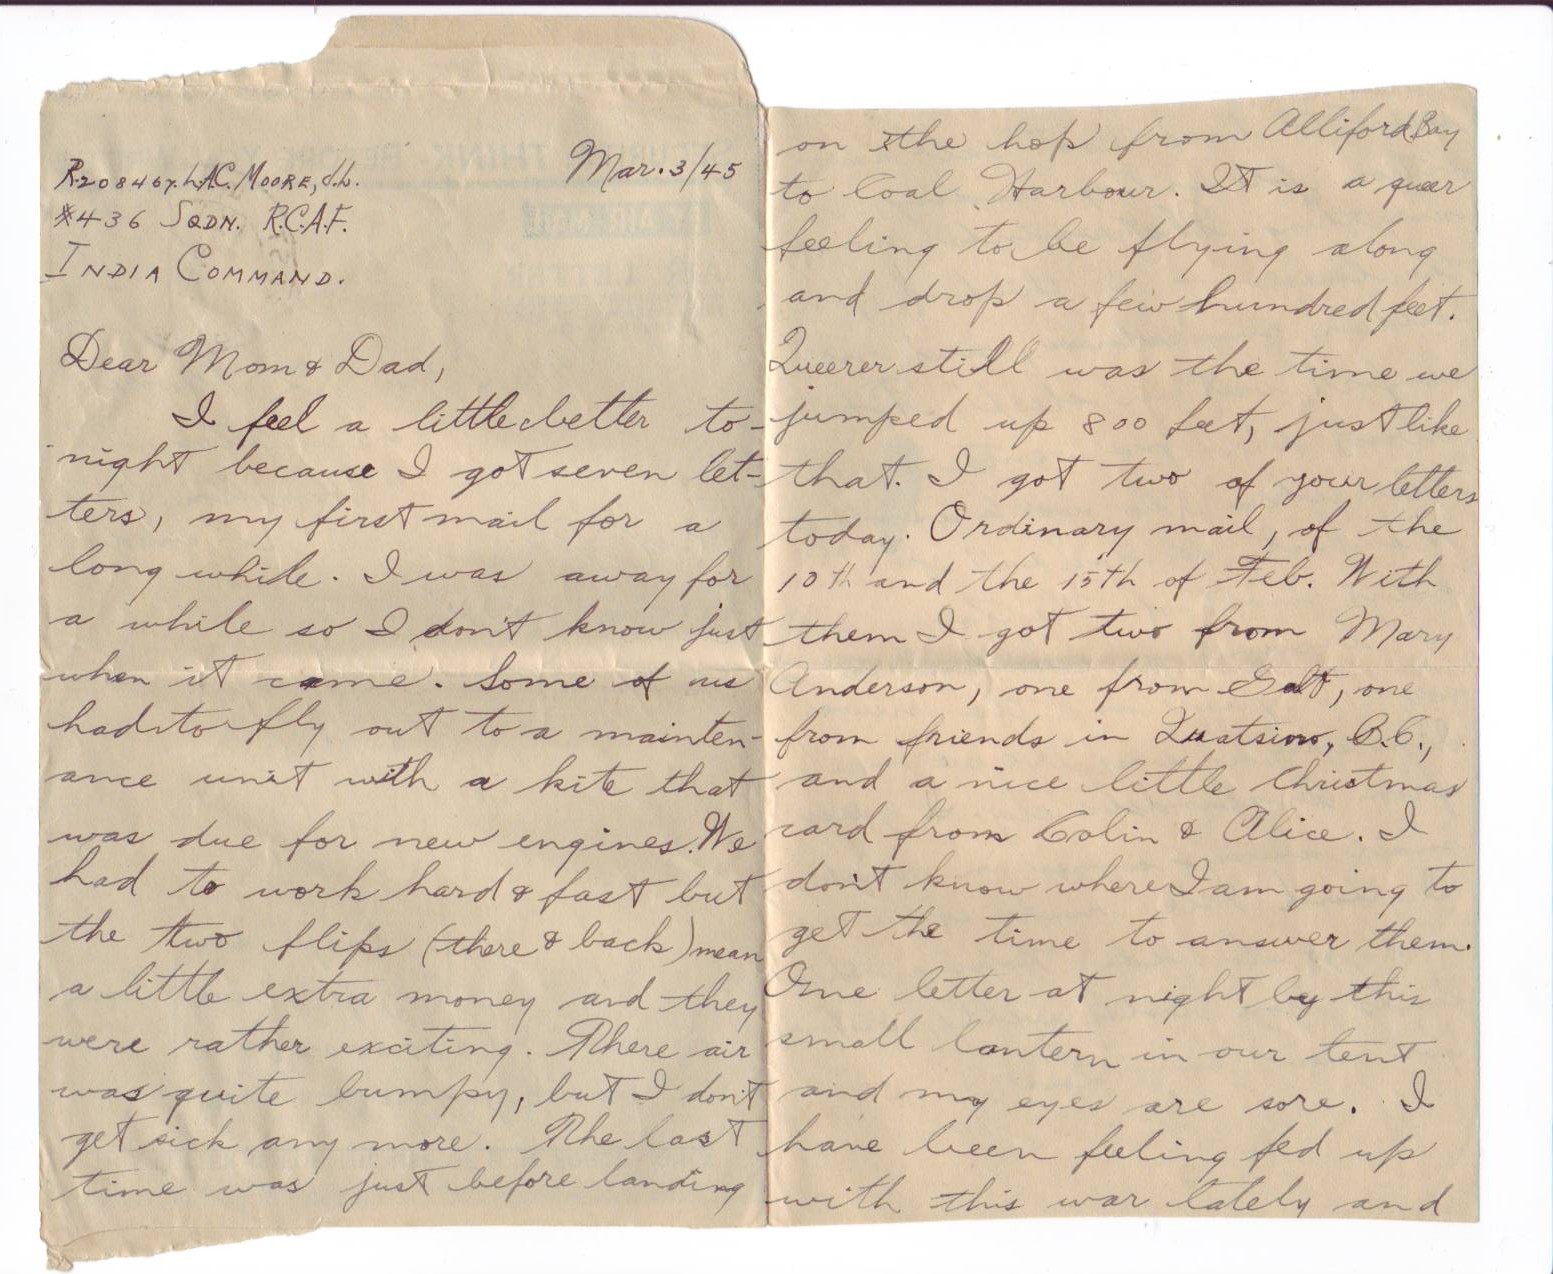 R208467. LAC. MOORE, J.L.
#436 SQDN. R.C.A.F.
INDIA COMMAND.
Mar. 3/45
Dear Mom & Dad,
I feel a little better to-
night because I got seven let-
ters, my first mail for a
long while. I was away for
a while so I don't know just
when it came. Some of us
had to fly out to a mainten-
ance unit with a kite that
was due for new engines. We
had to work hard & fast but
the two flips (there & back) mean
a little extra money and they
were rather exciting. There air
was quite bumpy, but I don't
get sick any more. The last
time was just before landing
on the hop from Alliford Bay
to Coal Harbour. It is a queer
feeling to be flying along
and drop a few hundred feet.
Queerer still was the time we
jumped up 800 feet, just like
that. I got two of your letters
today. Ordinary mail, of the
10th and the 15th of Feb. With
them I got two from Mary
Anderson, one from Galt, one
from friends in Quatsino, B.C.,
and a nice little Christmas
card from Colin & Alice. I
don't know where I am going to
get the time to answer them.
One letter at night by this
small lantern in our tent
and my eyes are sore. I
have been feeling fed up
with this war lately and